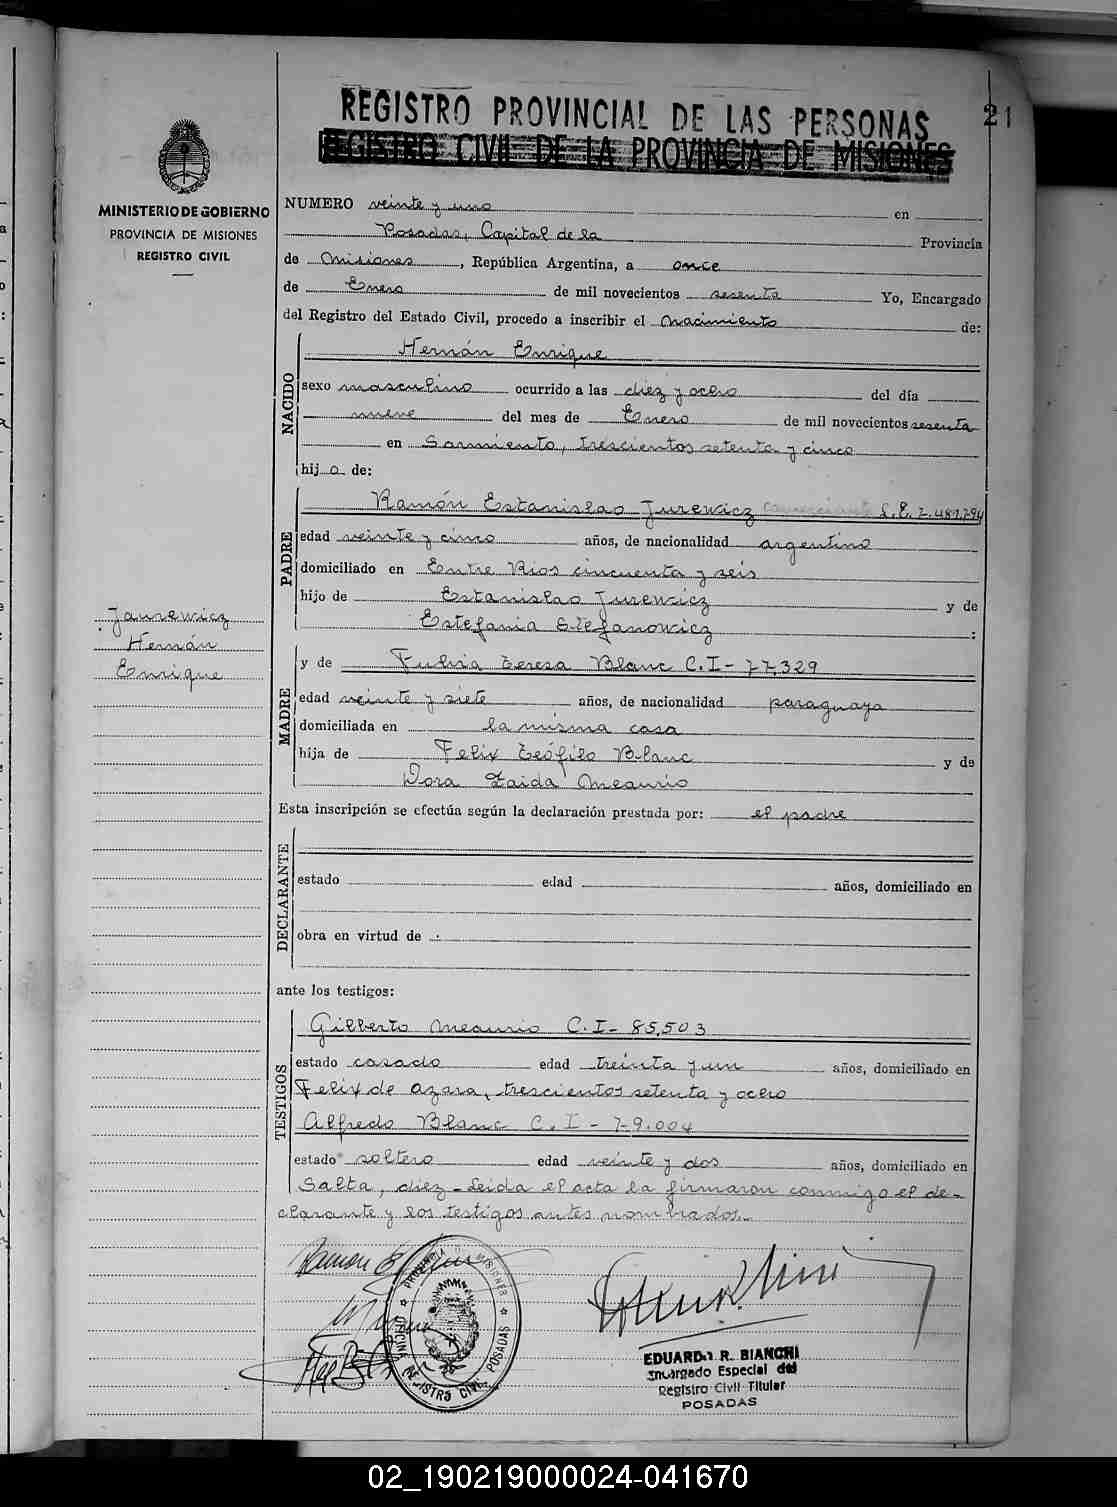 21
REGISTRO PROVINCIAL DE LAS PERSONAS
REGISTRO CIVIL DE LA PROVINCIA DE MISIONES
MINISTERIO DE GOBIERNO
PROVINCIA DE MISIONES
REGISTRO CIVIL
Jaurewicz
Hernán
Enrique
NUMERO veinte y uno en
Posadas, Capital de la Provincia
de Misiones, República Argentina, a once
de Enero de mil novecientos sesenta Yo, Encargado
del Registro del Estado Civil, procedo a inscribir el nacimiento de:
NACIDO
Hernán Enrique
sexo masculino ocurrido a las diez y ocho del día
nueve del mes de Enero de mil novecientos sesenta
en Sarmiento, trescientos setenta y cinco
hijo de:
PADRE
Ramón Estanislao Jurewicz comerciante L.E. 7.487.794
edad veinte y cinco años, de nacionalidad argentino
domiciliado en Entre Rios cincuenta y seis
hijo de Estanislao Jurewicz y de
Estefania Stefanowicz :
MADRE
y de Fulvia Teresa Blanc C.I- 77.329
edad veinte y siete años, de nacionalidad paraguaya
domiciliada en la misma casa
hija de Felix Teófilo Blanc y de
Dora Zaida Meaurio
Esta inscripción se efectúa según la declaración prestada por: el padre
DECLARANTE
estado edad años, domiciliado en
obra en virtud de
ante los testigos:
TESTIGOS
Gilberto Meaurio C.I- 85.503
estado casado edad treinta y un años, domiciliado en
Felix de Azara, trescientos setenta y ocho
Alfredo Blanc C.I - 79.004
estado soltero edad veinte y dos años, domiciliado en
Salta, diez - Leida el acta la firmaron conmigo el de-
clarante y los testigos antes nombrados.
PROVINCIA MISIONES
OFICINA REGISTRO CIVIL POSADAS
EDUARDO R. BIANCHI
Encargado Especial del
Registro Civil Titular
POSADAS
02_190219000024-041670